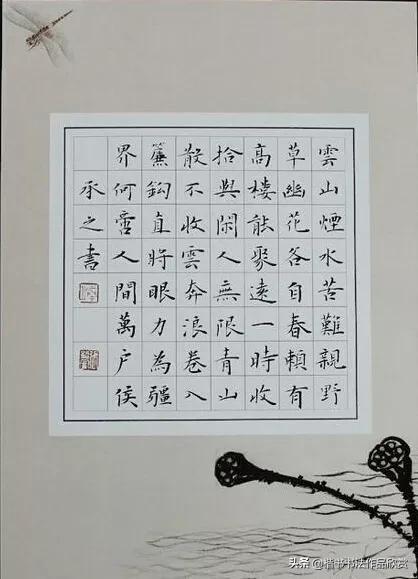 雲山煙水苦難親野
草幽花各自春賴有
高樓能聚遠一時收
拾與閑人無限青山
散不收雲奔浪卷入
簾鈎直將眼力為疆
界何啻人間萬户侯
承之書
头条 @楷书书法作品欣赏